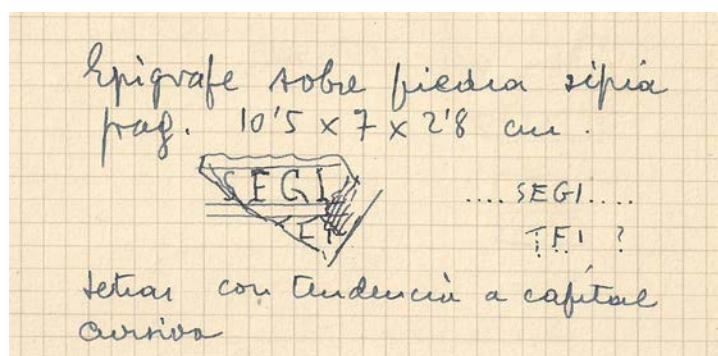 Epigrafe sobre piedra sipia
frag. 10'5 x 7 x 2'8 cm.
SEGI
....SEGI....
TFI ?
letras con tendencia a capital
cursiva